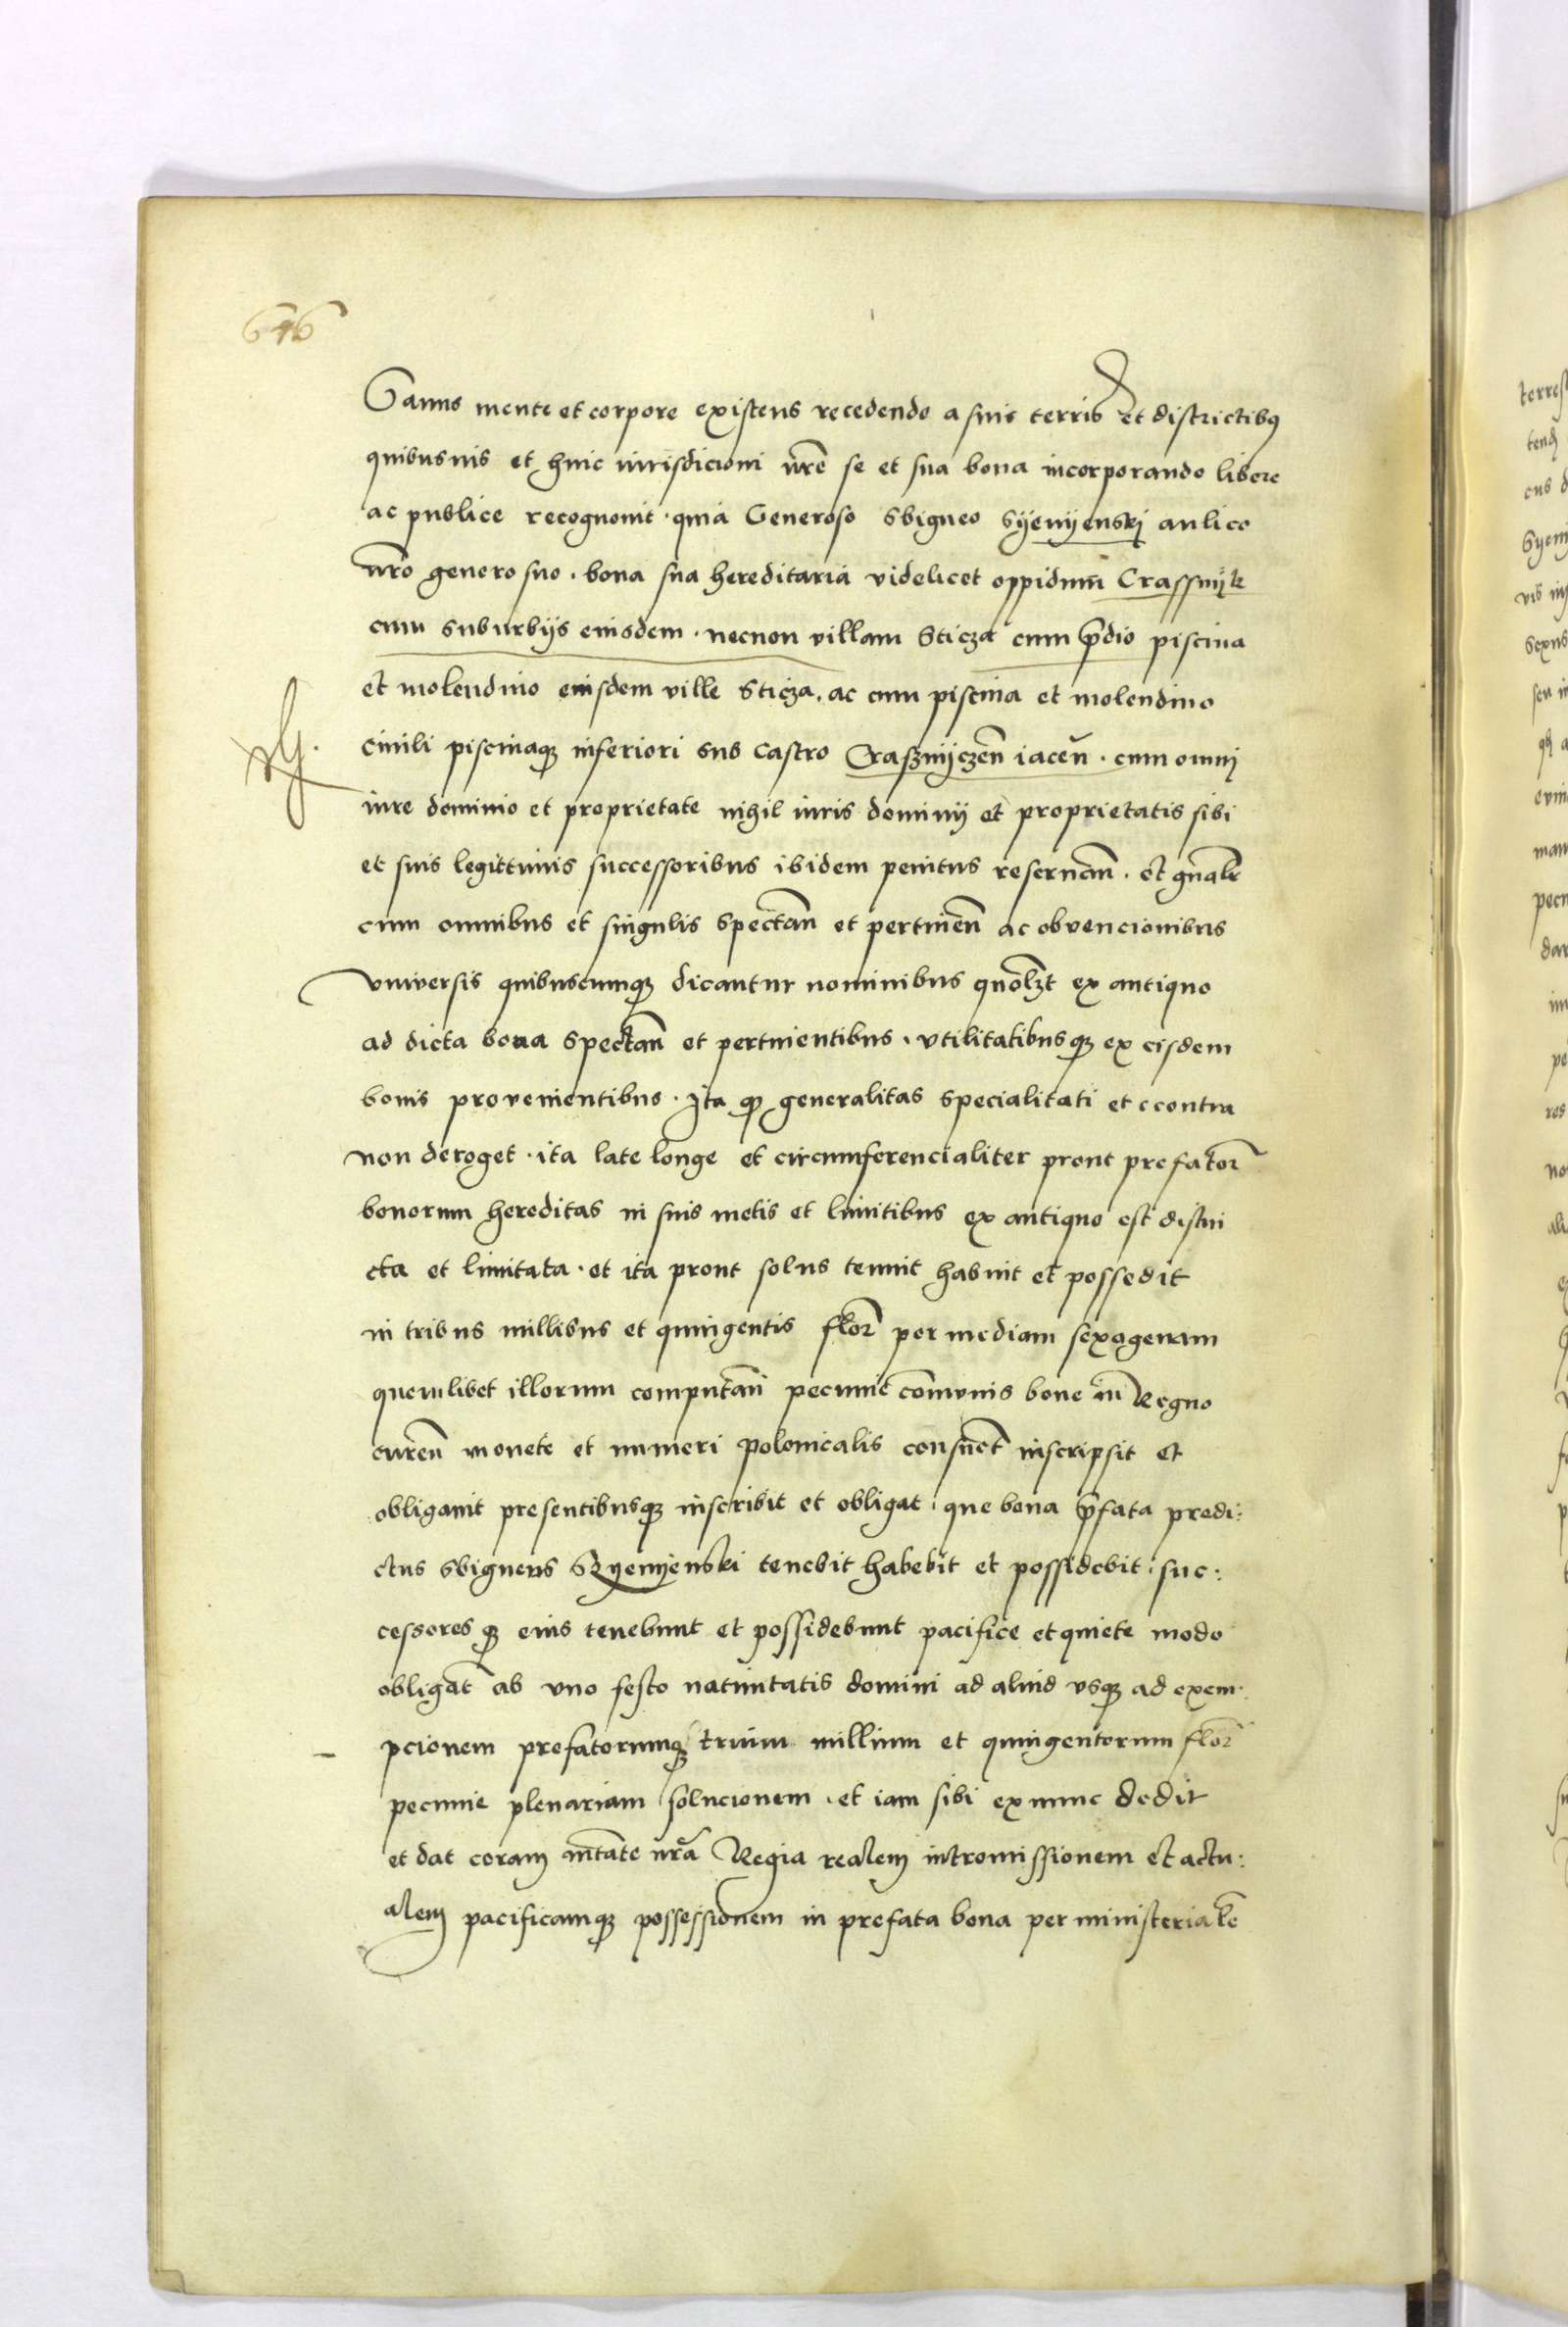 646
Sanus mente et corpore existens recedendo a suis terris et districtibꝰ
quibusuis et huic iurisdicioni nr̄e se et sua bona incorporando libere
ac publice recognouit · quia Generoso Sbigneo Syenyenskj aulico
nr̄o genero suo · bona sua hereditaria videlicet oppidum Crassnyk
cum suburbijs eiusdem · necnon villam Sticza cum p̄dio piscina
et molendino eiusdem ville Sticza, ac cum piscina et molendino
Ciuili piscinaqꝫ inferiori sub Castro Crasznyczen̄ iacen̄ · cum omnj
iure dominio et proprietate nihil iuris dominij et proprietatis sibi
et suis legittimis successoribus ibidem penitus reseruan̄ · et gn̄alr̄
cum omnibus et singulis spectan̄ et pertinen̄ ac obuencionibus
vniuersis quibuscumqꝫ dicantur nominibus quolꝫt ex antiquo
ad dicta bona spectan̄ et pertinentibus · vtilitatibusqꝫ ex eisdem
bonis prouenientibus · Ita qꝫ generalitas specialitati et econtra
non deroget · ita late longe et circumferencialiter prout prefator̄
bonorum hereditas in suis metis et limitibus ex antiquo est distin
cta et limitata · et ita prout solus tenuit habuit et possedit
in tribus millibus et quingentis flor̄ per mediam sexagenam
quemlibet illorum computan̄ pecunie com̄unis bone in Regno
curen̄ monete et numeri polonicalis consuet̄ inscripsit et
obligauit presentibusqꝫ inscribit et obligat : que bona p̄fata predi:
ctus Sbigneus Szyenyenski tenebit habebit et possidebit : suc:
cessores qꝫ eius tenebunt et possidebunt pacifice et quiete modo
obligat̄ ab vno festo natiuitatis domini ad aliud vsqꝫ ad exem
pcionem prefatorumqꝫ trium millium et quingentorum flor̄
pecunie plenariam solucionem · et iam sibi exnunc dedit
et dat coram mtāte nrā Regia realem intromissionem et actu:
alem pacificamqꝫ possessionem in prefata bona per ministerialē